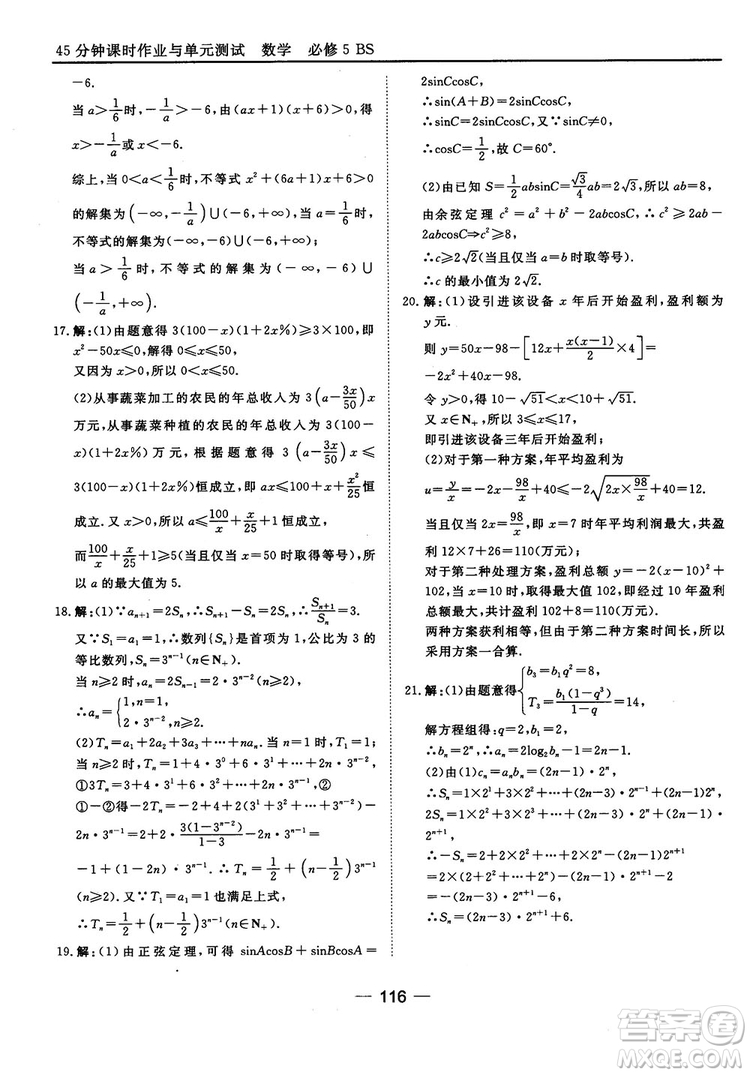 45分钟课时作业与单元测试 数学 必修5 BS
-6.
当 a>1/6 时,-1/a>-6,由(ax+1)(x+6)>0,得
x>-1/a 或 x<-6.
综上,当 0<a<1/6 时,不等式 x²+(6a+1)x+6>0
的解集为(-∞,-1/a)∪(-6,+∞);当 a=1/6 时,
不等式的解集为(-∞,-6)∪(-6,+∞);
当 a>1/6 时,不等式的解集为(-∞,-6)∪
(-1/a,+∞).
17.解:(1)由题意得 3(100-x)(1+2x%)≥300,即
x²-50x≤0,解得 0≤x≤50,
又因为 x>0,所以 0<x≤50.
(2)从事蔬菜加工的农民的年总收入为 3(a-3x/50)
x 万元,从事蔬菜种植的农民的年总收入为 3(100-
x)(1+2x%)万元,根据题意得 3(a-3x/50)x≤
3(100-x)(1+2x%)恒成立,即 ax≤100+x+x²/25恒
成立.又 x>0,所以 a≤100/x+x/25+1 恒成立,
而100/x+x/25+1≥5(当且仅当 x=50 时取得等号),所
以 a 的最大值为 5.
18.解:(1)∵aₙ₊₁=2Sₙ,∴Sₙ₊₁-Sₙ=2Sₙ,∴Sₙ₊₁/Sₙ=3.
又∵S₁=a₁=1,∴数列{Sₙ}是首项为 1,公比为 3 的
等比数列,Sₙ=3ⁿ⁻¹(n∈N₊)
当 n≥2 时,aₙ=2Sₙ₋₁=2·3ⁿ⁻²(n≥2),
∴aₙ={1,n=1,
2·3ⁿ⁻²,n≥2.
(2)Tₙ=a₁+2a₂+3a₃+⋯+naₙ 当 n=1 时,T₁=1
当 n≥2 时,Tₙ=1+4·3⁰+6·3¹+⋯+2n·3ⁿ⁻²,
①3Tₙ=3+4·3¹+6·3²+⋯+2n·3ⁿ⁻¹,②
①-②得:-2Tₙ=-2+4+2(3¹+3²+⋯+3ⁿ⁻²)-
2n·3ⁿ⁻¹=2+2·3(1-3ⁿ⁻²)/(1-3)-2n·3ⁿ⁻¹=
-1+(1-2n)·3ⁿ⁻¹.∴Tₙ=1/2+(n-1/2)3ⁿ⁻¹
(n≥2).又∵T₁=a₁=1 也满足上式,
∴Tₙ=1/2+(n-1/2)3ⁿ⁻¹(n∈N₊)
19.解:(1)由正弦定理,可得 sinAcosB+sinBcosA=
2sinCcosC,
∴sin(A+B)=2sinCcosC,
∴sinC=2sinCcosC,又∵sinC≠0,
∴cosC=1/2,故 C=60°.
(2)由已知 S=1/2absinC=√3/4ab=2√3,所以 ab=8,
由余弦定理 c²=a²+b²-2abcosC,∴c²≥2ab-
2abcosC⇒c²≥8,
∴c≥2√2(当且仅当 a=b 时取等号).
∴c 的最小值为 2√2.
20.解:(1)设引进该设备 x 年后开始盈利,盈利额为
y 元.
则 y=50x-98-[12x+x(x-1)/2×4]=
-2x²+40x-98,
令 y>0,得 10-√51<x<10+√51.
又 x∈N₊,所以 3≤x≤17.
即引进该设备三年后开始盈利;
(2)对于第一种方案,年平均盈利为
u=y/x=-2x-98/x+40≤-2√(2x×98/x)+40=12,
当且仅当 2x=98/x,即 x=7 时年平均利润最大,共盈
利 12×7+26=110(万元);
对于第二种处理方案,盈利总额 y=-2(x-10)²+
102,当 x=10 时,年利润总额最大,最大值为 102,
最大盈利总额 102+8=110(万元).
两种方案获利相等,但由于第二种方案时间长,所以
采用方案一合算.
21.解:(1)由题意得{b₃=b₁q²=8,
T₃=b₁(1-q³)/(1-q)=14,
解方程组得:q=2,b₁=2,
∴bₙ=2ⁿ,∴aₙ=2log₂bₙ-1=2n-1.
(2)由(1)cₙ=aₙbₙ=(2n-1)·2ⁿ,
∴Sₙ=1×2+3×2²+5×2³+⋯+(2n-1)·2ⁿ,
2Sₙ=1×2²+3×2³+⋯+(2n-3)·2ⁿ+(2n-
1)·2ⁿ⁺¹,
∴-Sₙ=2+2×2²+⋯+2×2ⁿ-(2n-1)2ⁿ⁺¹=
2(1×2+2×2²+⋯+2×2ⁿ)-(2n-1)·2ⁿ⁺¹+2
=-(2n-3)·2ⁿ⁺¹-6,
∴Sₙ=(2n-3)·2ⁿ⁺¹+6.
— 116 —
答案圈